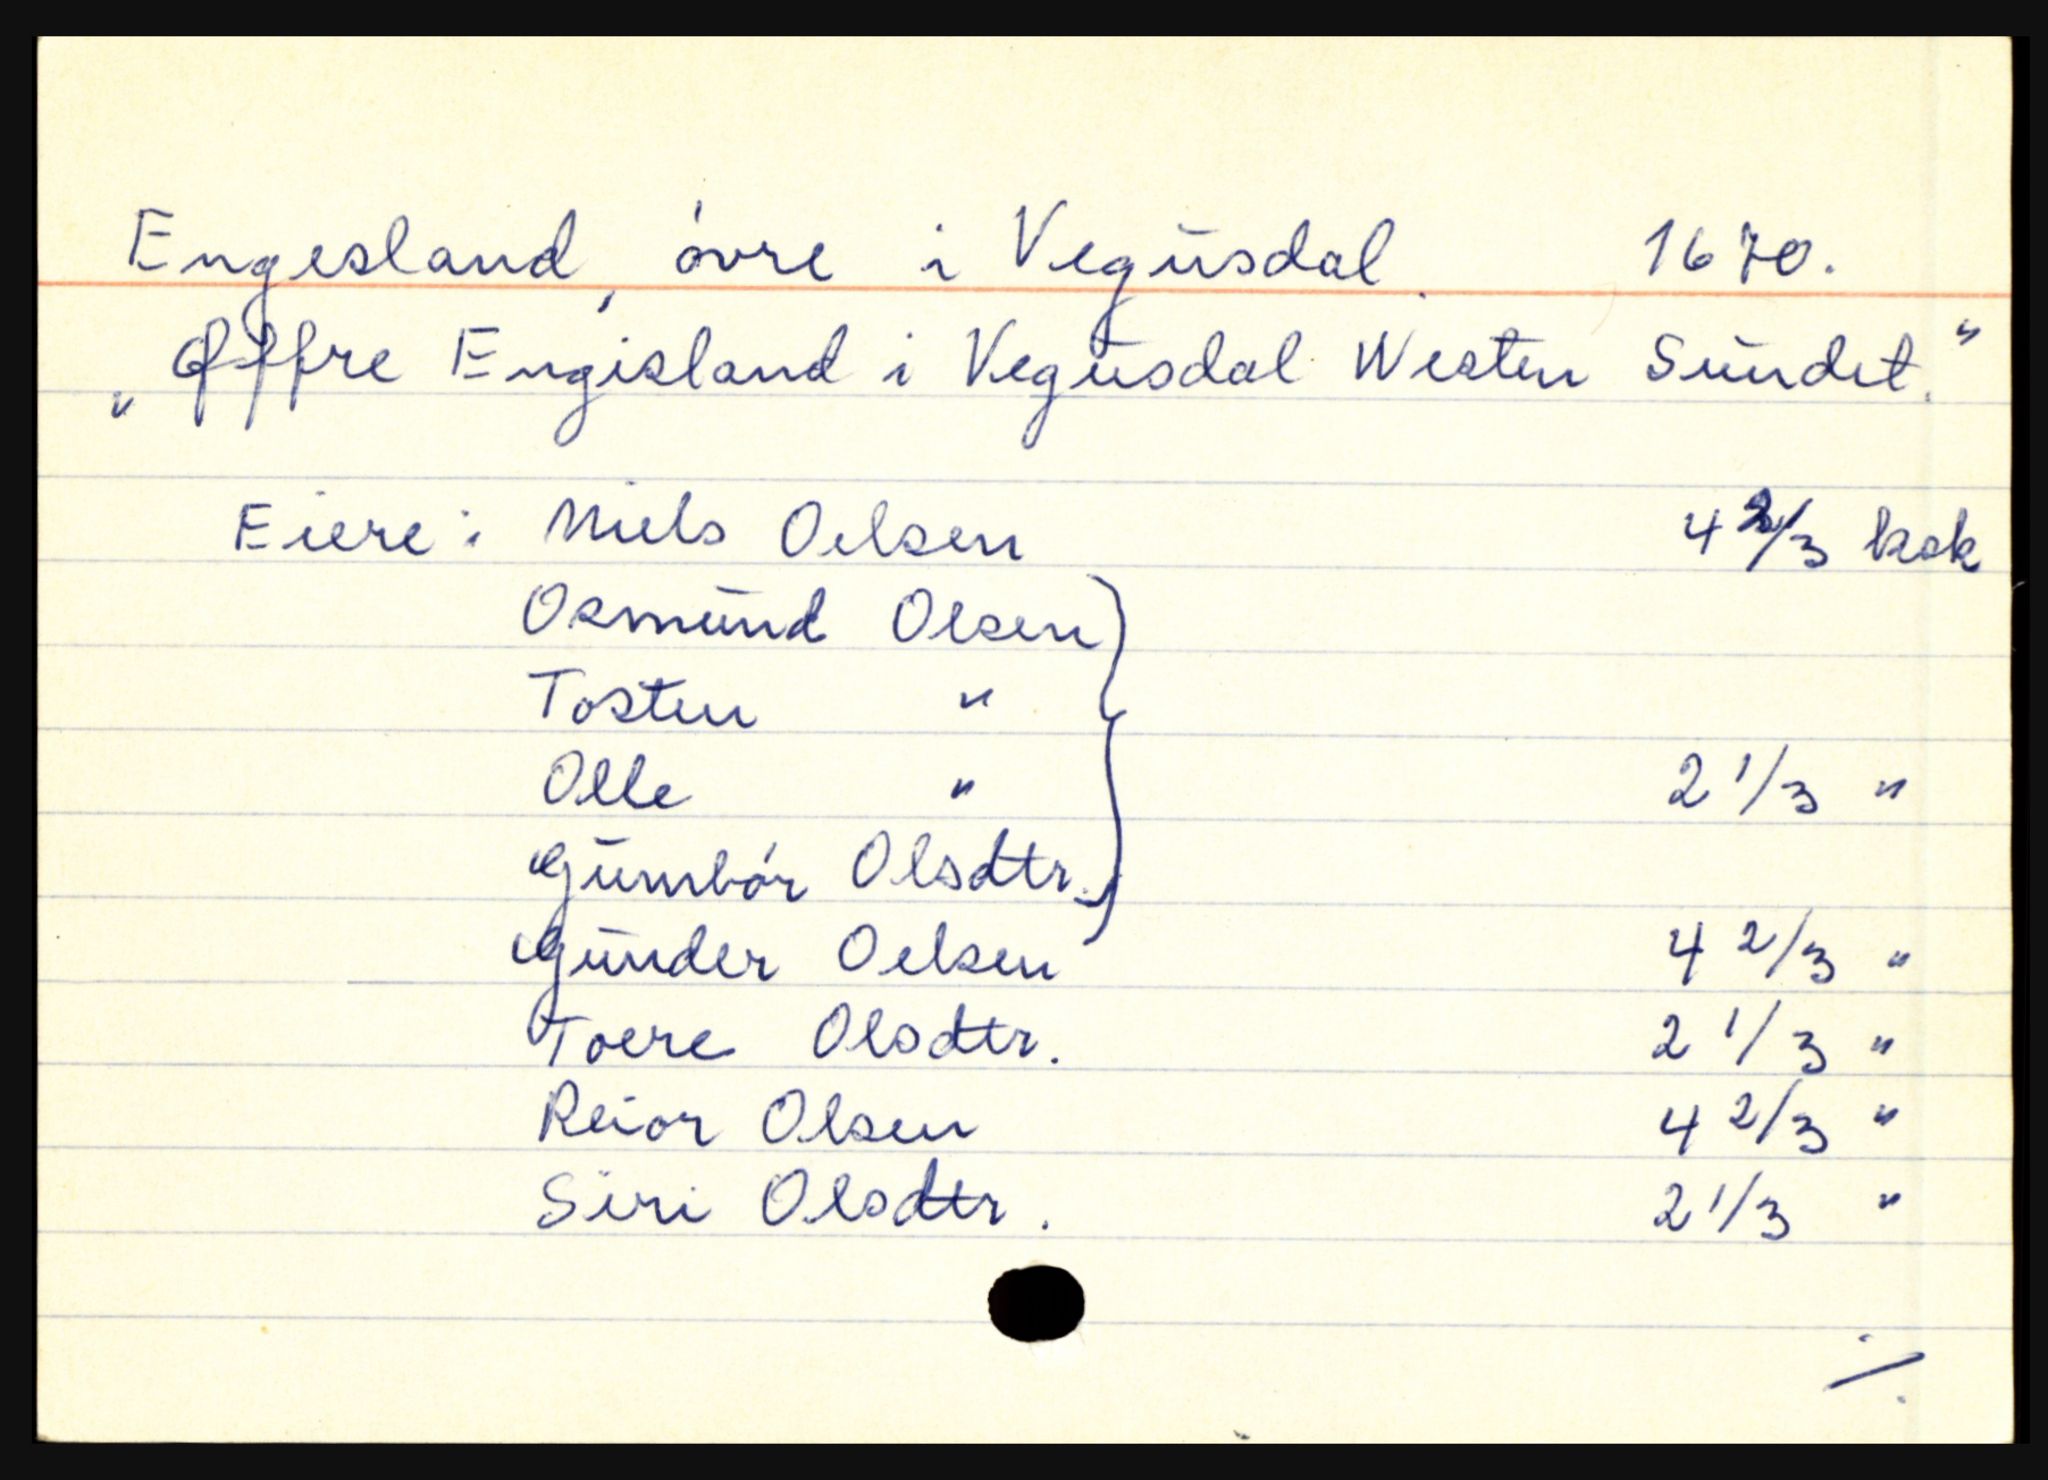 Engesland, øvre i Vegusdal. 1670.
„Øffre Engisland i Vegusdal Westen Sundet."
Eiere: Niels Oelsen 4 2/3 ksk
Osmund Olsen
Tosten "
Olle " 2 1/3 "
Gumbør Olsdtr.
Gunder Oelsen 4 2/3 "
Toere Olsdtr. 2 1/3 "
Reior Olsen 4 2/3 "
Siri Olsdtr. 2 1/3 "
./.